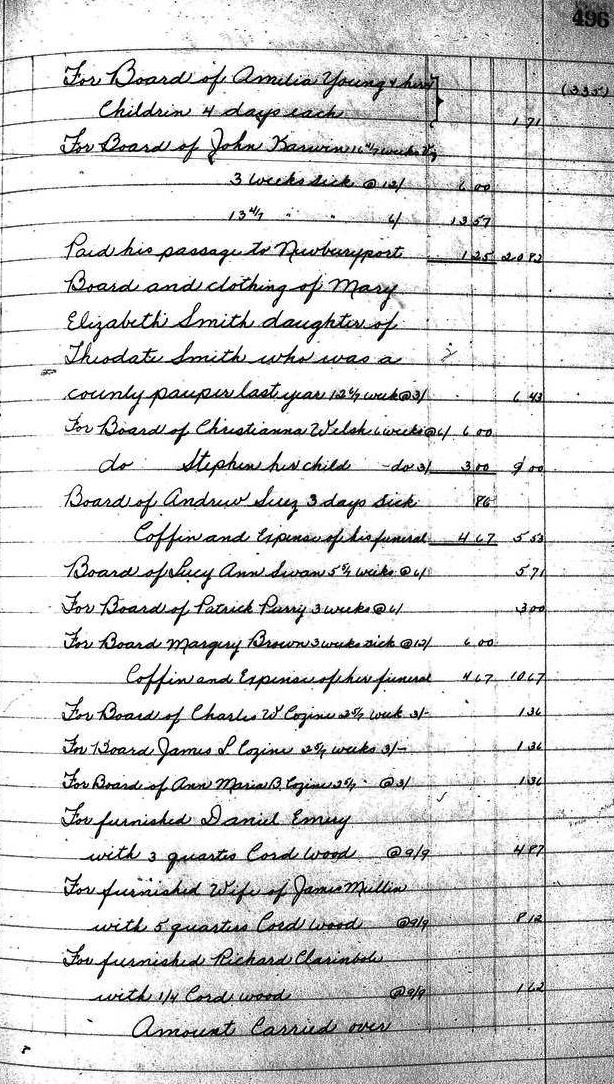 496
For Board of Amelia Young & her
(335)
Children 4 days each 1 71
For Board of John Karwin 16 4/7 weeks Viz
3 weeks sick @ 12/ 6 00
13 4/7 " " 6/ 13 57
Paid his passage to Newburyport 1 25 20 82
Board and clothing of Mary
Elizabeth Smith daughter of
Theodate Smith who was a
county pauper last year 12 6/7 week @ 3/ 6 43
For Board of Christianna Welsh 6 weeks @ 6/ 6 00
do Stephen her child - do 3/ 3 00 9 00
Board of Andrew Suez 3 days sick 86
Coffin and Expense of his funeral 4 67 5 53
Board of Lucy Ann Swan 5 5/7 weeks @ 6/ 5 71
For Board of Patrick Parry 3 weeks @ 6/ 3 00
For Board Margery Brown 3 weeks sick @ 12/ 6 00
Coffin and Expense of her funeral 4 67 10 67
For Board of Charles W Cozine 2 5/7 week 3/- 1 36
For Board James L Cozine 2 5/7 weeks 3/- 1 36
For Board of Ann Maria B. Cozine 2 5/7 " @ 3/ 1 36
For furnished Daniel Emery
with 3 quarters Cord Wood @ 9/9 4 87
For furnished Wife of James Mullin
with 5 quarters Cord Wood @ 9/9 8 12
For furnished Richard
with 1/4 Cord wood @ 9/9 1 62
Amount Carried over